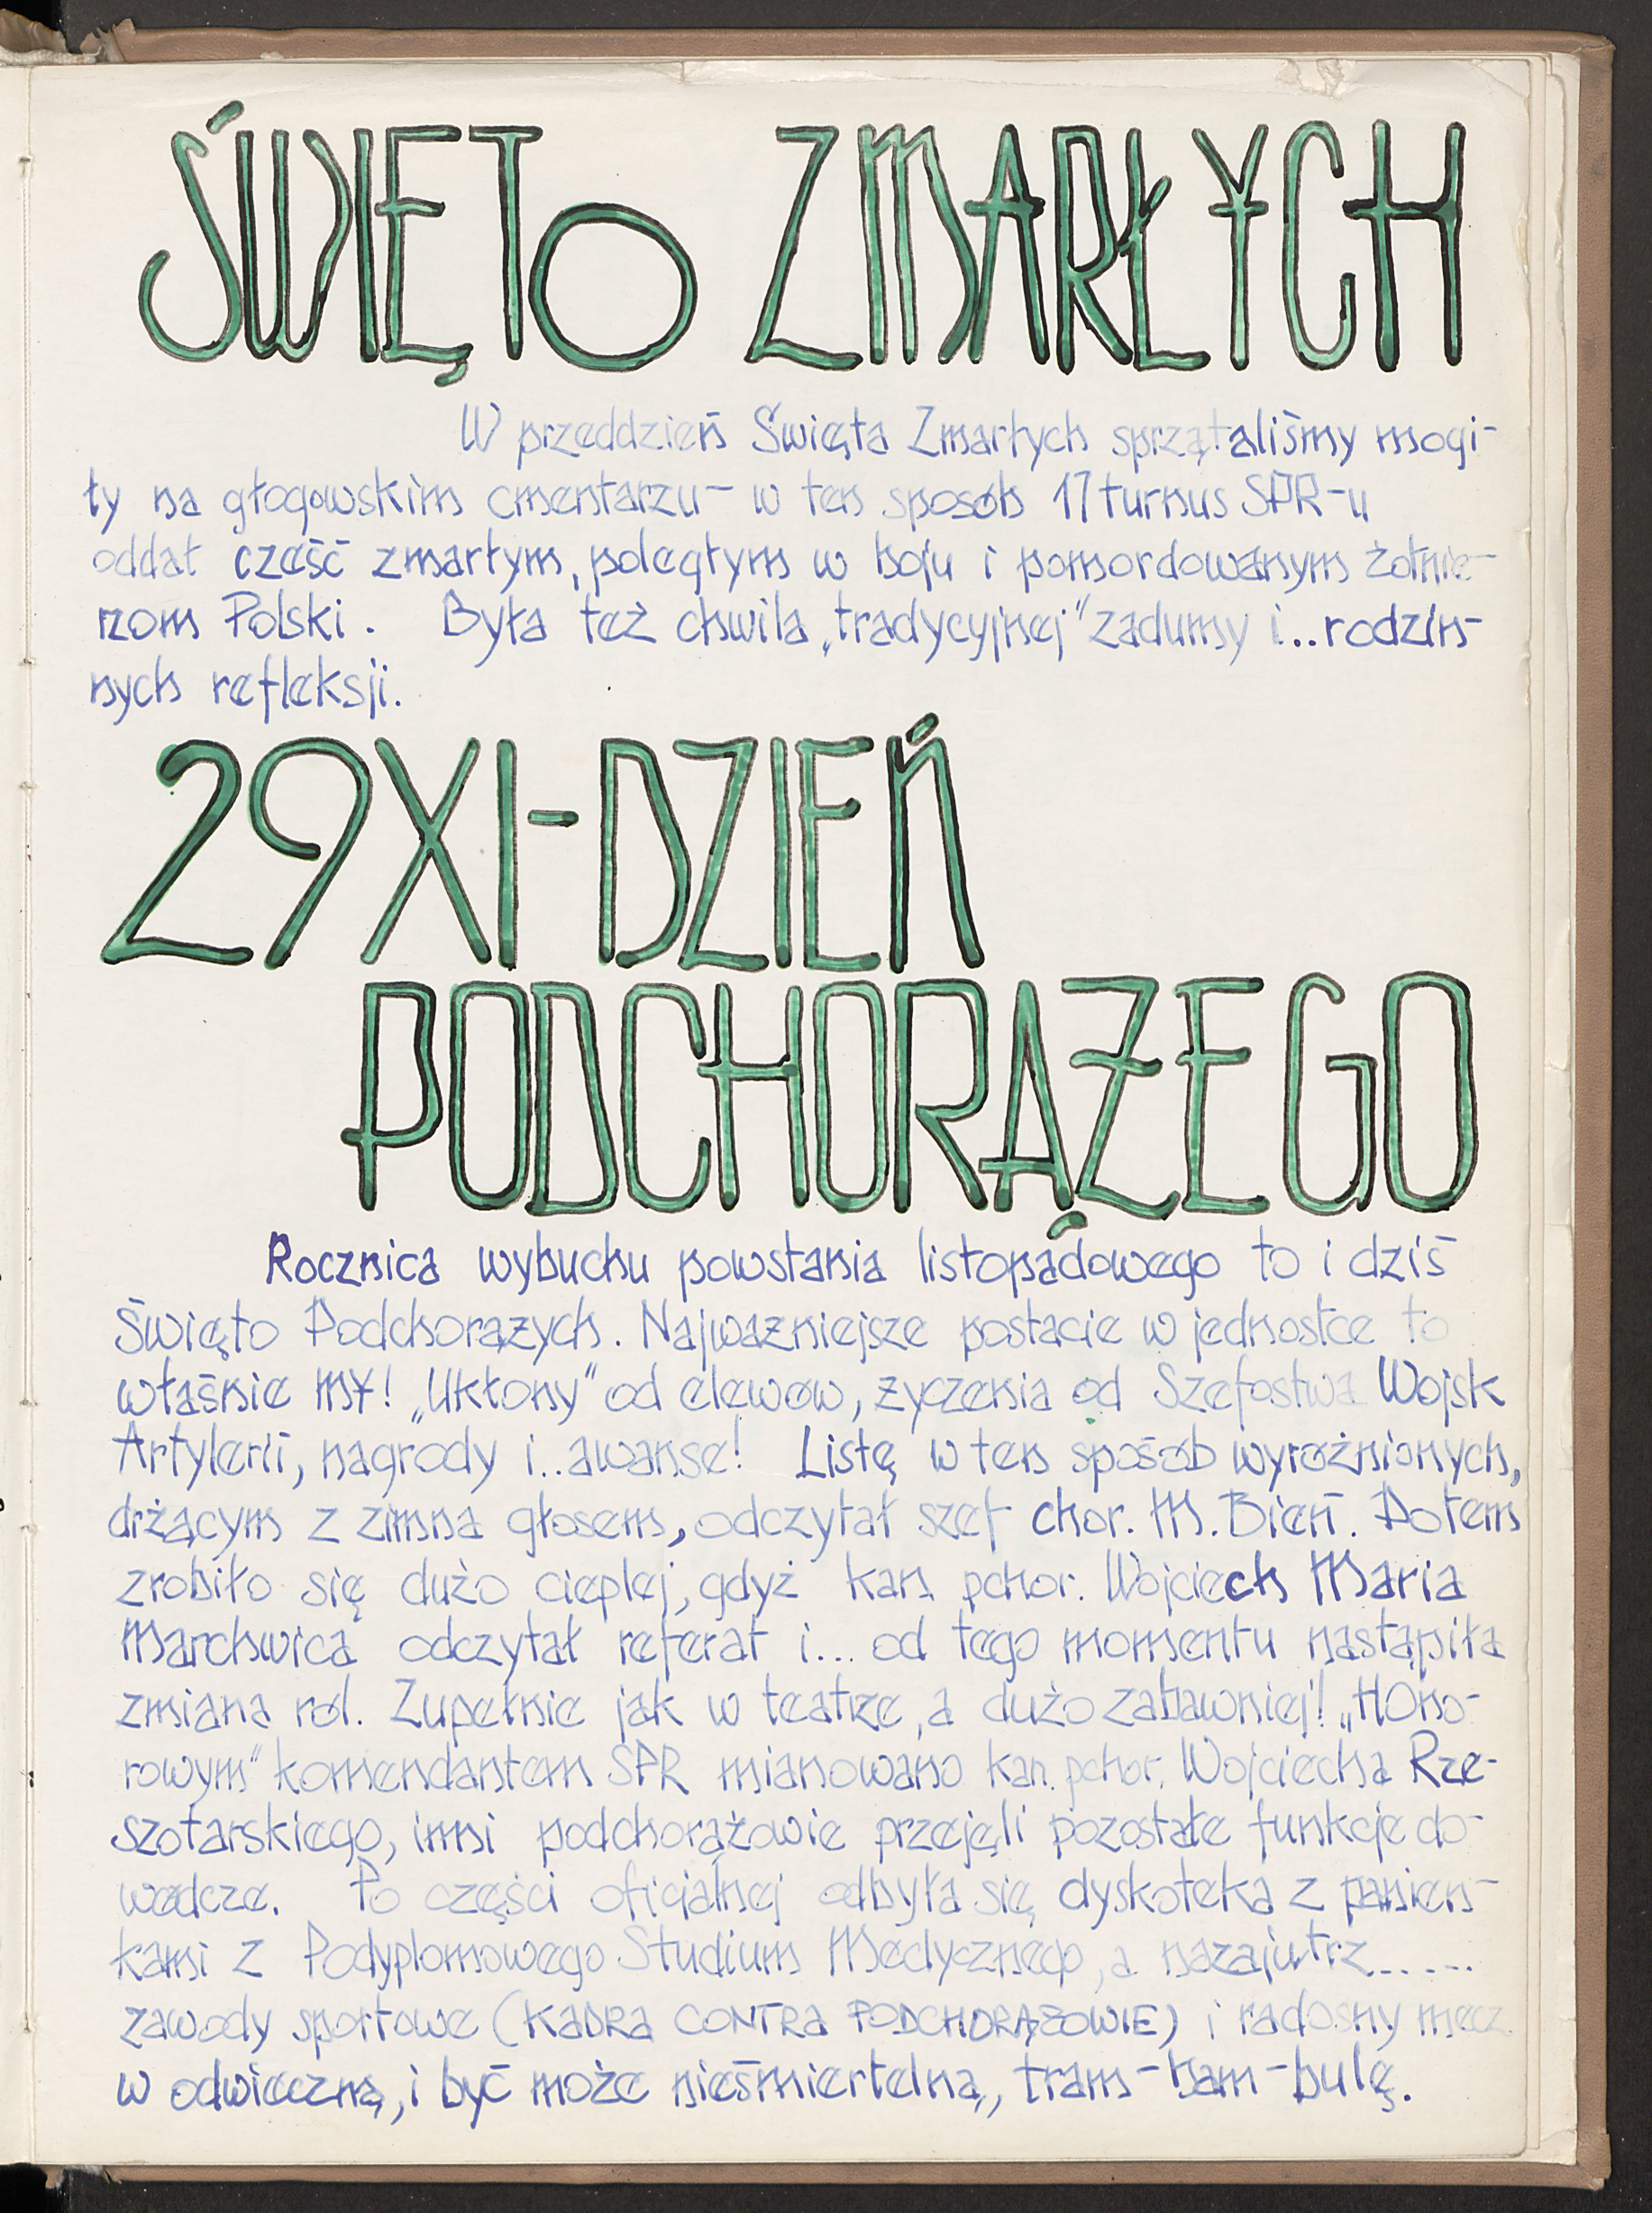 ŚWIĘTO ZMARŁYCH
W przeddzień Święta Zmarłych sprzątaliśmy mogi-
ły na głogowskim cmentarzu - w ten sposób 17 turnus SPR-u
oddał cześć zmarłym, poległym w boju i pomordowanym żołnie-
rzom Polski. Była też chwila „tradycyjnej" zadumy i.. rodzin-
nych refleksji.
29 XI - DZIEŃ
PODCHORĄŻEGO
Rocznica wybuchu powstania listopadowego to i dziś
Święto Podchorążych. Najważniejsze postacie w jednostce to
właśnie MY! „Ukłony" od elewów, życzenia od Szefostwa Wojsk
Artylerii, nagrody i.. awanse! Listę w ten sposób wyróżnionych,
drżącym z zimna głosem, odczytał szef chor. M. Bień. Potem
zrobiło się dużo cieplej, gdyż kan. pchor. Wojciech Maria
Marchwica odczytał referat i... od tego momentu nastąpiła
zmiana ról. Zupełnie jak w teatrze, a dużo zabawniej! „HOno-
rowym" komendantem SPR mianowano kan. pchor. Wojciecha Rze-
szotarskiego, inni podchorążowie przejęli pozostałe funkcje do-
wódcze. Po części oficjalnej odbyła się dyskoteka z panien-
kami z Podyplomowego Studium Medycznego, a nazajutrz.....
zawody sportowe (KADRA CONTRA PODCHORĄŻOWIE) i radosny mecz
w odwieczną, i być może nieśmiertelną, tram-bam-bulę.